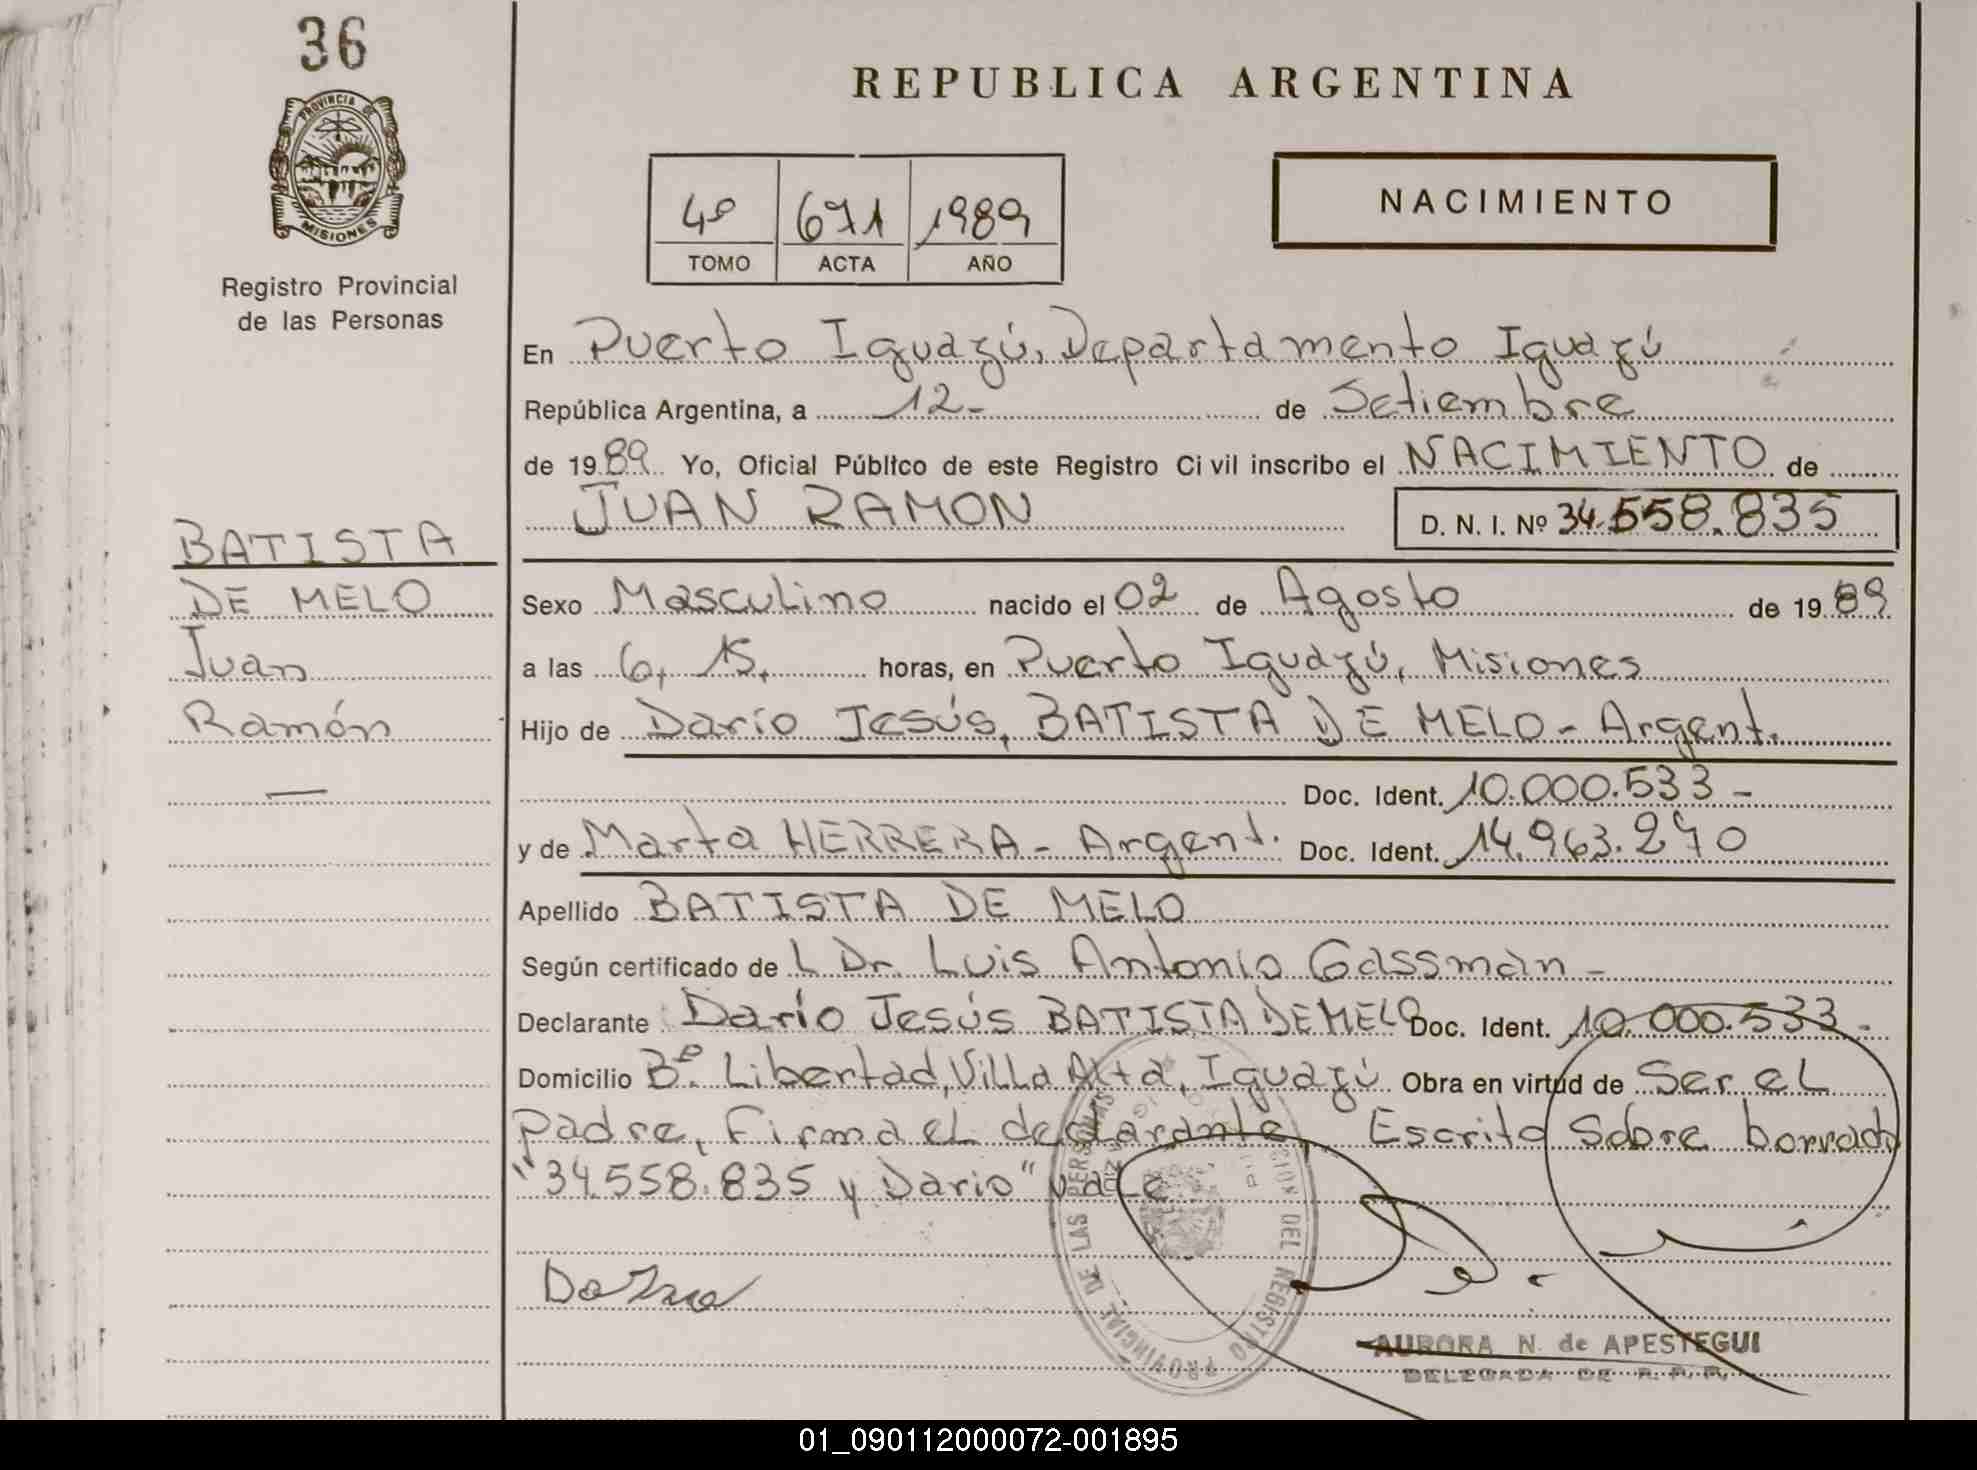 36
PROVINCIA DE
MISIONES
Registro Provincial
de las Personas
REPUBLICA ARGENTINA
4º 671 1989
TOMO ACTA AÑO
NACIMIENTO
En Puerto Iguazú, Departamento Iguazú
República Argentina, a 12- de Setiembre
de 1989 Yo, Oficial Público de este Registro Civil inscribo el NACIMIENTO de
JUAN RAMON D. N. I. Nº 34.558.835
BATISTA
DE MELO
Juan
Ramón
—
Sexo Masculino nacido el 02 de Agosto de 1989
a las 6, 15, horas, en Puerto Iguazú, Misiones
Hijo de Darío Jesús, BATISTA DE MELO - Argent.
Doc. Ident. 10.000.533 -
y de Marta HERRERA - Argent. Doc. Ident. 14.963.270
Apellido BATISTA DE MELO
Según certificado de L Dr. Luis Antonio Gassmàn -
Declarante Darío Jesús BATISTA DE MELO Doc. Ident. 10.000.533 -
Domicilio Bº. Libertad, Villa Alta, Iguazú Obra en virtud de Ser el
padre, Firma el declarante, Escrito Sobre borrado
"34.558.835 y Dario" vale
AURORA N. de APESTEGUI
DELEGADA DE R. P. P.
01_090112000072-001895